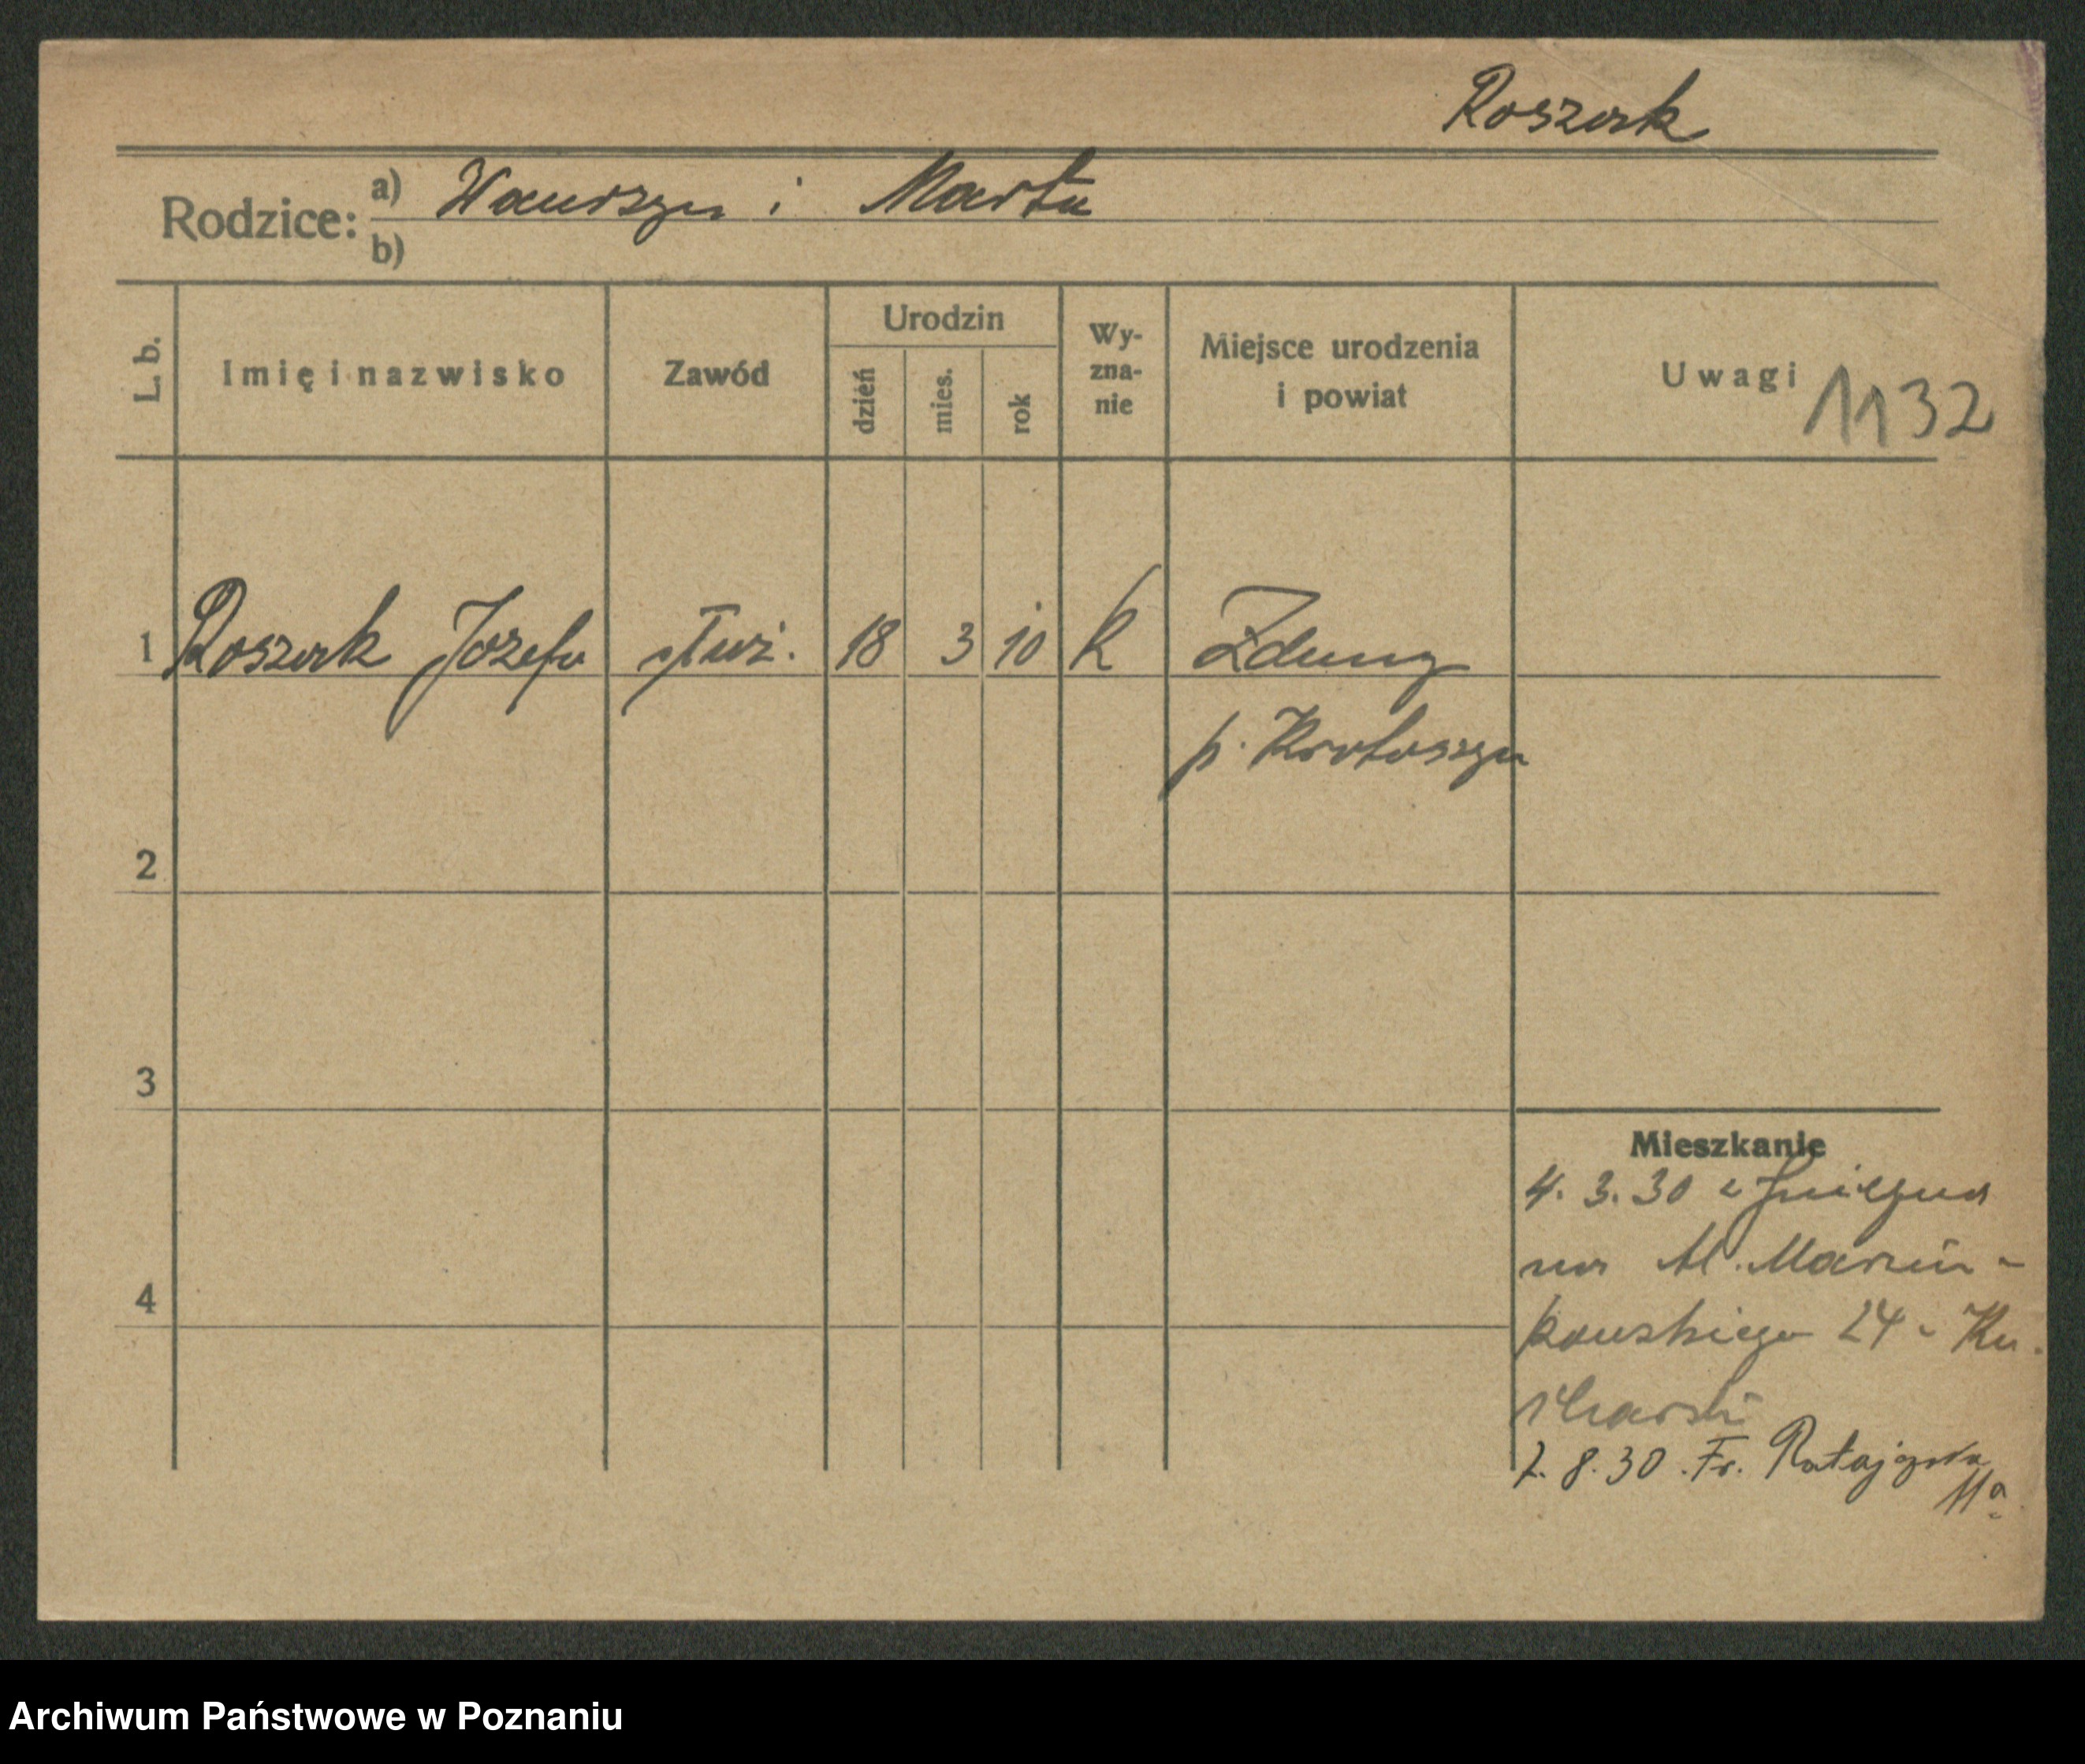 Roszak
Rodzice: a) Wawrzyn i Marta
b)
L. b. Imię i nazwisko Zawód Urodzin dzień mies. rok Wy-zna-nie Miejsce urodzenia i powiat Uwagi 1132
1 Roszak Józefa służ. 18 3 10 k Zduny
p. Krotoszyn
2
3
4
Mieszkanie
4. 3. 30 z
M. Marcin-
kowskiego 24 -
charski
7. 8. 30. Fr. Ratajczaka
11a